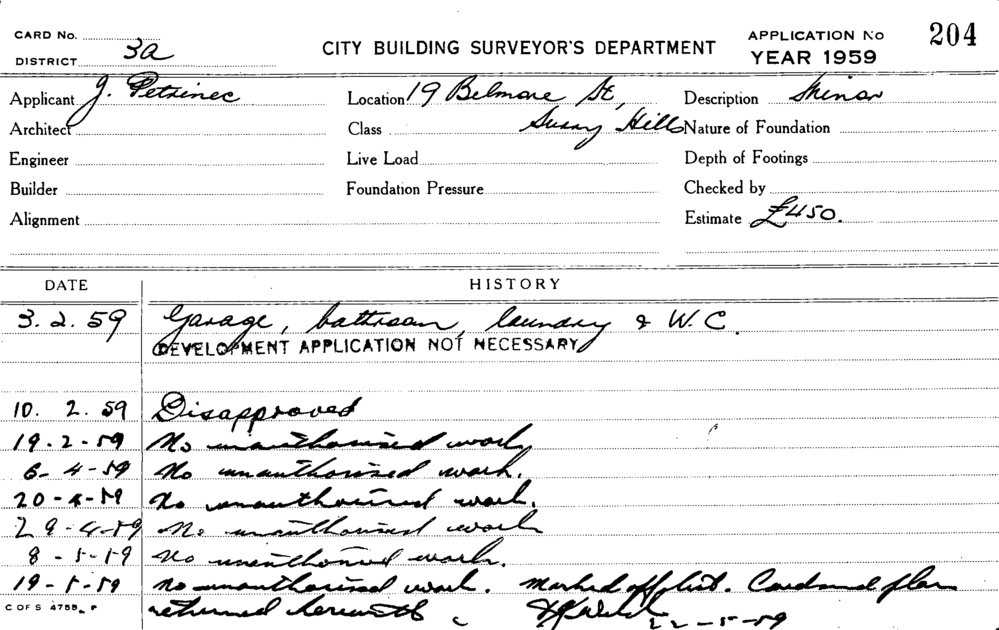 CARD No.
DISTRICT 3a
CITY BUILDING SURVEYOR'S DEPARTMENT
APPLICATION No 204
YEAR 1959
Applicant J. Petrinec
Location 19 Belmore St,
Description Minor
Architect
Class Surry Hills
Nature of Foundation
Engineer
Live Load
Depth of Footings
Builder
Foundation Pressure
Checked by
Alignment
Estimate £450.
DATE HISTORY
3. 2. 59 Garage, bathroom, laundry & W.C.
DEVELOPMENT APPLICATION NOT NECESSARY
10. 2. 59 Disapproved
19-2-59 No unauthorised work
6-4-59 No unauthorised work.
20-4-59 No unauthorised work.
29-4-59 No unauthorised work
8-5-59 No unauthorised work.
19-5-59 No unauthorised work. Marked off list. Card and plan
C OF S 4758 returned herewith
22-5-59